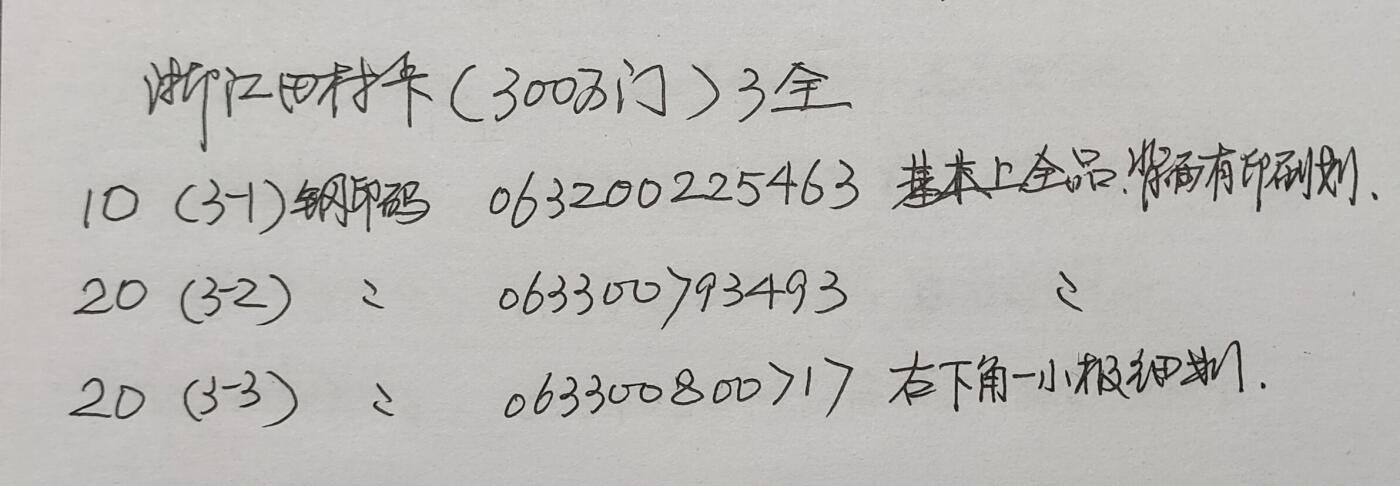 浙江田村卡(300万门)3全
10 (3-1)钢印码 063200225463 基本上全品.背面有印刷划.
20 (3-2) 〃 063300793493 〃
20 (3-3) 〃 063300800717 右下角一小极细划.